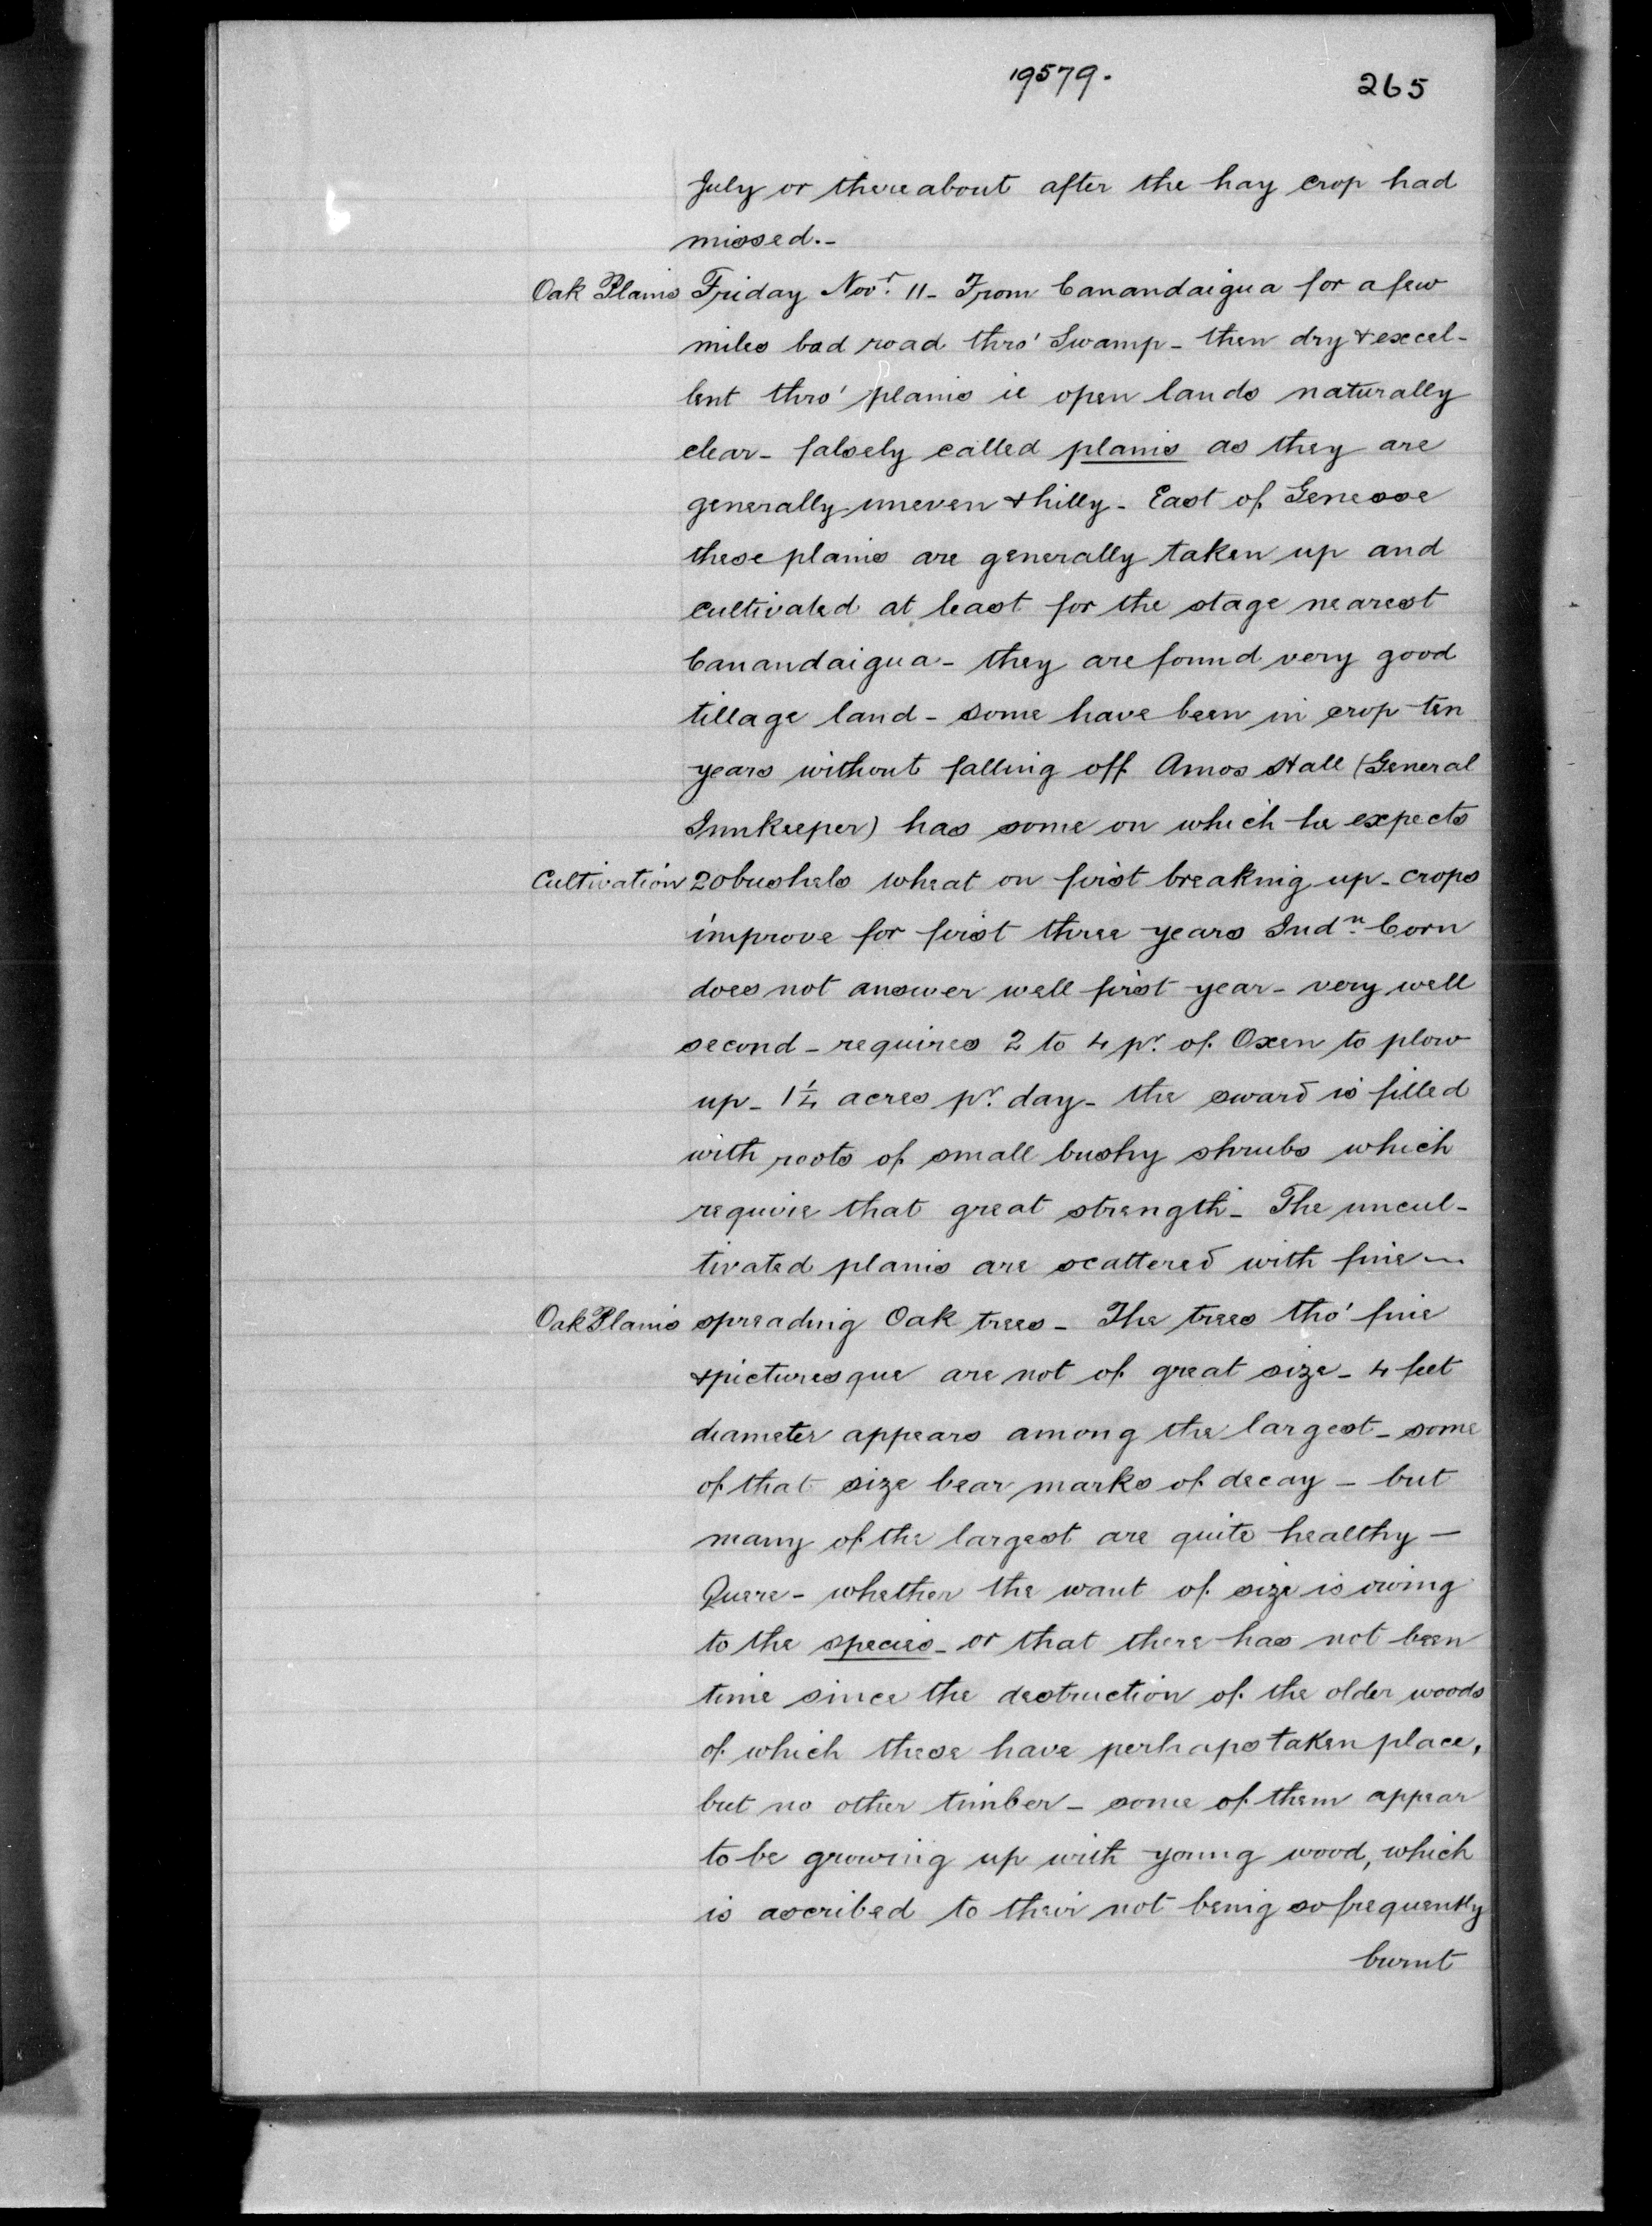 19579. 265
July or thereabout after the hay crop had
missed.-
Oak Plains Friday Novr. 11 - From Canandaigua for a few
miles bad road thro' Swamp - then dry & excel-
lent thro' plains ie open lands naturally
clear - falsely called plains as they are
generally uneven & hilly - East of Genesse
these plains are generally taken up and
cultivated at least for the stage nearest
Canandaigua - they are found very good
tillage land - some have been in crop ten
years without falling off Amos Hall (General
Innkeeper) has some on which he expects
Cultivation 20 bushels wheat on first breaking up - crops
improve for first three years Indn. Corn
does not answer well first year - very well
second - requires 2 to 4 pr. of Oxen to plow
up - 1¼ acres pr. day - the sward is filled
with roots of small bushy shrubs which
require that great strength - The uncul-
tivated plains are scattered with fine
Oak Plains spreading Oak trees - The trees tho' fine
& picturesque are not of great size - 4 feet
diameter appears among the largest - some
of that size bear marks of decay - but
many of the largest are quite healthy -
Quere - whether the want of size is owing
to the species - or that there has not been
time since the destruction of the older woods
of which these have perhaps taken place,
but no other timber - some of them appear
to be growing up with young wood, which
is ascribed to their not being so frequently
burnt